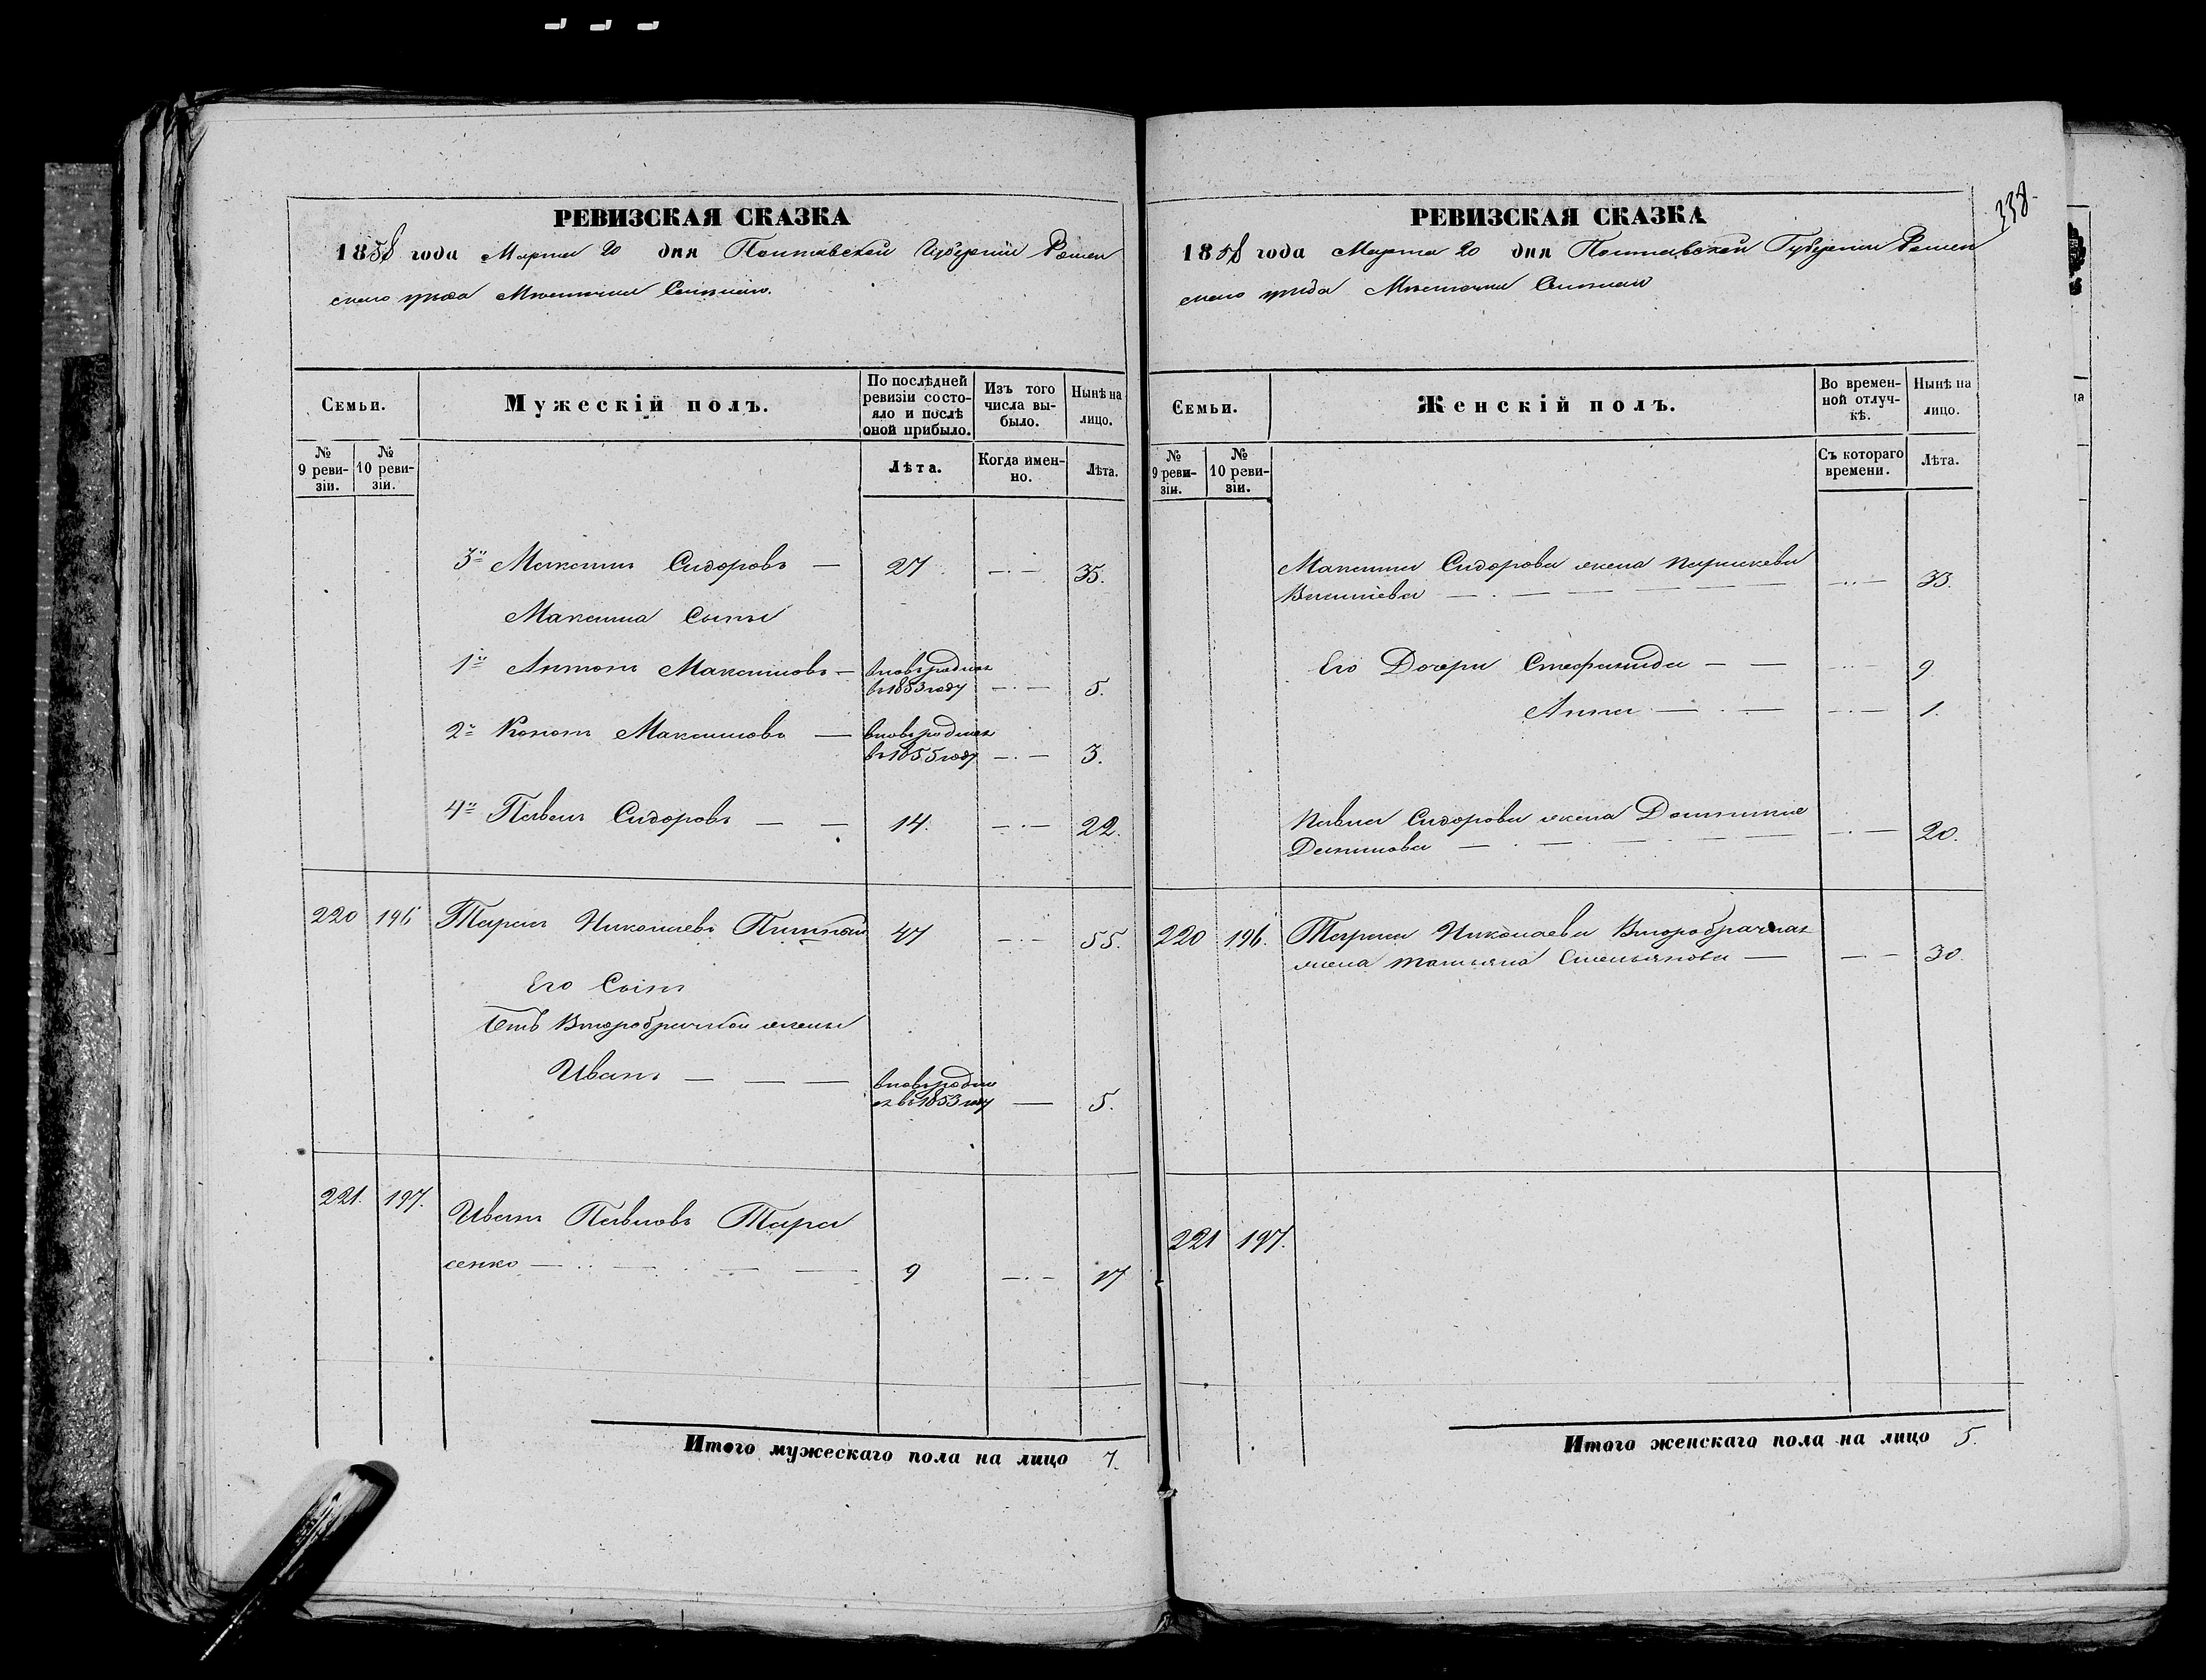 РЕВИЗСКАЯ СКАЗКА
1858 года Марта 20 дня Полтавской Губерніи Ромен
скаго уѣзда Мѣстечка
Семьи.
Мужескій полъ.
По послѣдней ревизіи состояло и послѣ оной прибыло.
Изъ того числа выбыло.
Нынѣ на лицо.
№ 9 ревизіи.
№ 10 ревизіи.
Лѣта.
Когда именно.
Лѣта.
3й Максимъ Сидоровъ — 27 —·— 35.
Максима Сыны
1й Антонъ Максимовъ — вновьрожден
въ 1853 году —·— 5.
2й Кононъ Максимовъ — вновьрожден
въ 1855 году —·— 3.
4й Павелъ Сидоровъ — — 14. —·— 22.
220 196 Тарасъ Николаевъ 47 —·— 55.
Его Сынъ
Отъ Второбрачной жены
Иванъ — — — вновьрожде
нъ въ 1853 году — 5.
221. 197. Иванъ Павловъ Тара
сенко — 9 —·— 17
Итого мужескаго пола на лицо 7.
338.
РЕВИЗСКАЯ СКАЗКА
1858 года Марта 20 дня Полтавской Губерніи Ромен
скаго уѣзда Мѣстечка
Семьи.
Женскій полъ.
Во временной отлучкѣ.
Нынѣ на лицо.
№ 9 ревизіи.
№ 10 ревизіи.
Съ котораго времени.
Лѣта.
Максима Сидорова жена Параскева
Васильева — —·— 33.
Его Дочери Стефанида — — —·— 9.
Анна — — —·— 1.
Павла Сидорова жена Домникія
Данилова — —·— 20.
220 196. Тараса Николаева Второбрачная
жена Татьяна Емельянова — — — 30.
221 197.
Итого женскаго пола на лицо 5.